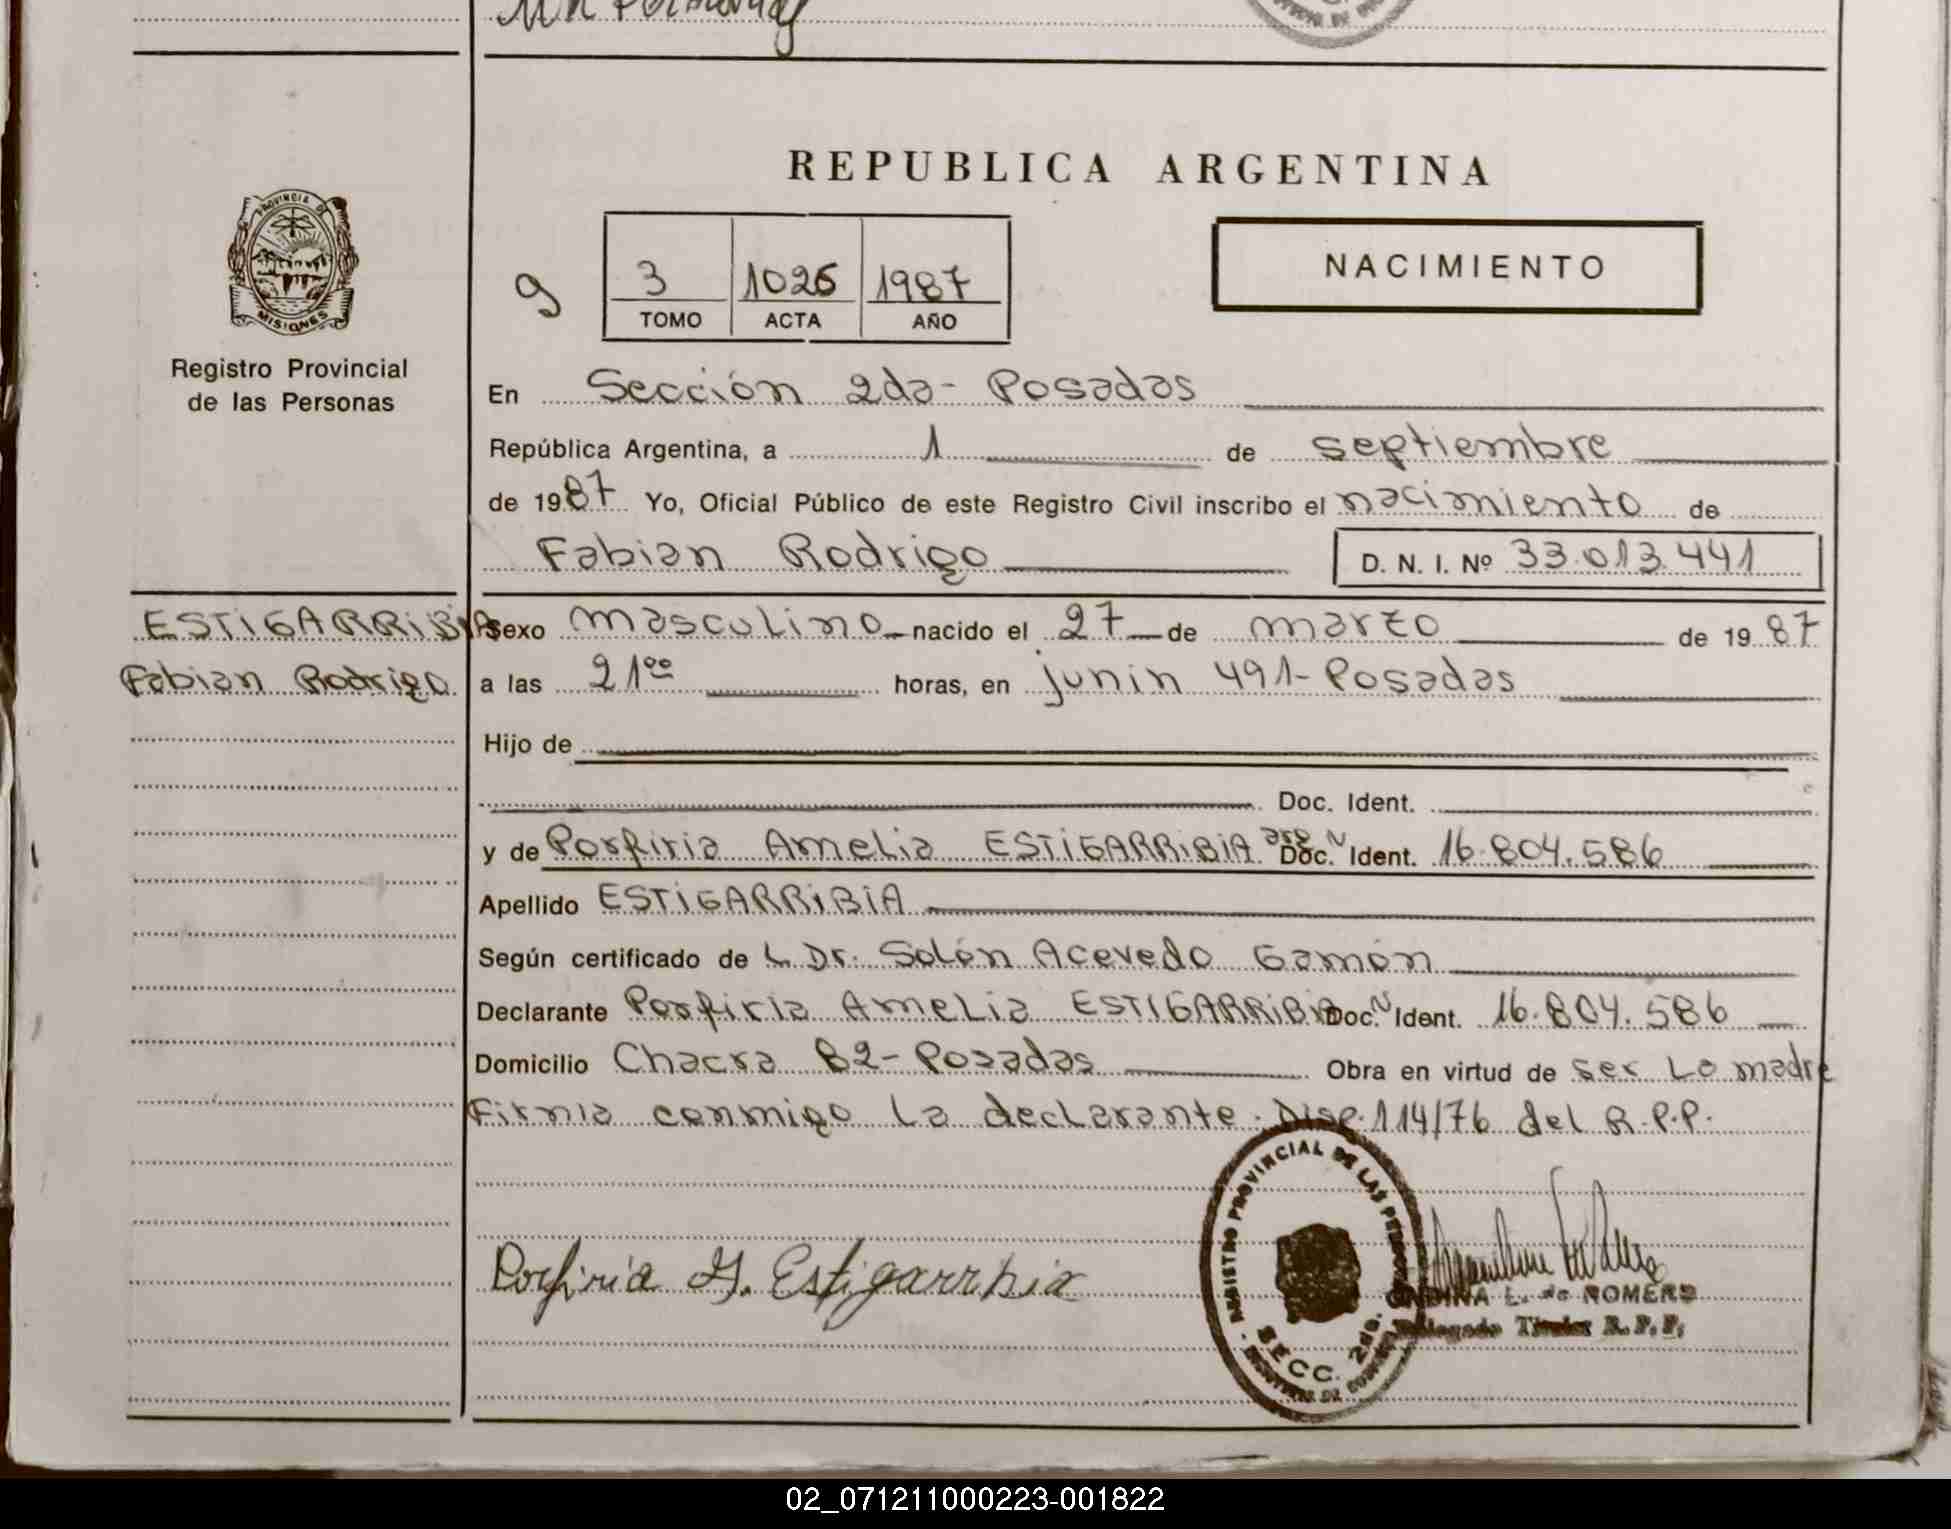 REPUBLICA ARGENTINA
PROVINCIA DE
MISIONES
Registro Provincial
de las Personas
9
3 1026 1987
TOMO ACTA AÑO
NACIMIENTO
En Sección 2da- Posadas
República Argentina, a 1 de septiembre
de 1987 Yo, Oficial Público de este Registro Civil inscribo el nacimiento de
Fabian Rodrigo D. N. I. Nº 33.013.441
ESTIGARRIBIA
Fabian Rodrigo
Sexo masculino nacido el 27 de marzo de 1987
a las 21⁰⁰ horas, en junin 491- Posadas
Hijo de
Doc. Ident.
y de Porfiria Amelia ESTIGARRIBIA arg Doc. N Ident. 16.804.586
Apellido ESTIGARRIBIA
Según certificado de L Dr. Solón Acevedo Gamón
Declarante Porfiria Amelia ESTIGARRIBIA Doc. N Ident. 16.804.586
Domicilio Chacra 82- Posadas Obra en virtud de ser La madre
Firma conmigo La declarante. Disp. 114/76 del R.P.P.
REGISTRO PROVINCIAL DE LAS PERSONAS
SECC. 2da.
Porfiria A. Estigarribia
L. de ROMERO
Delegado Titular R. P. P.
02_071211000223-001822